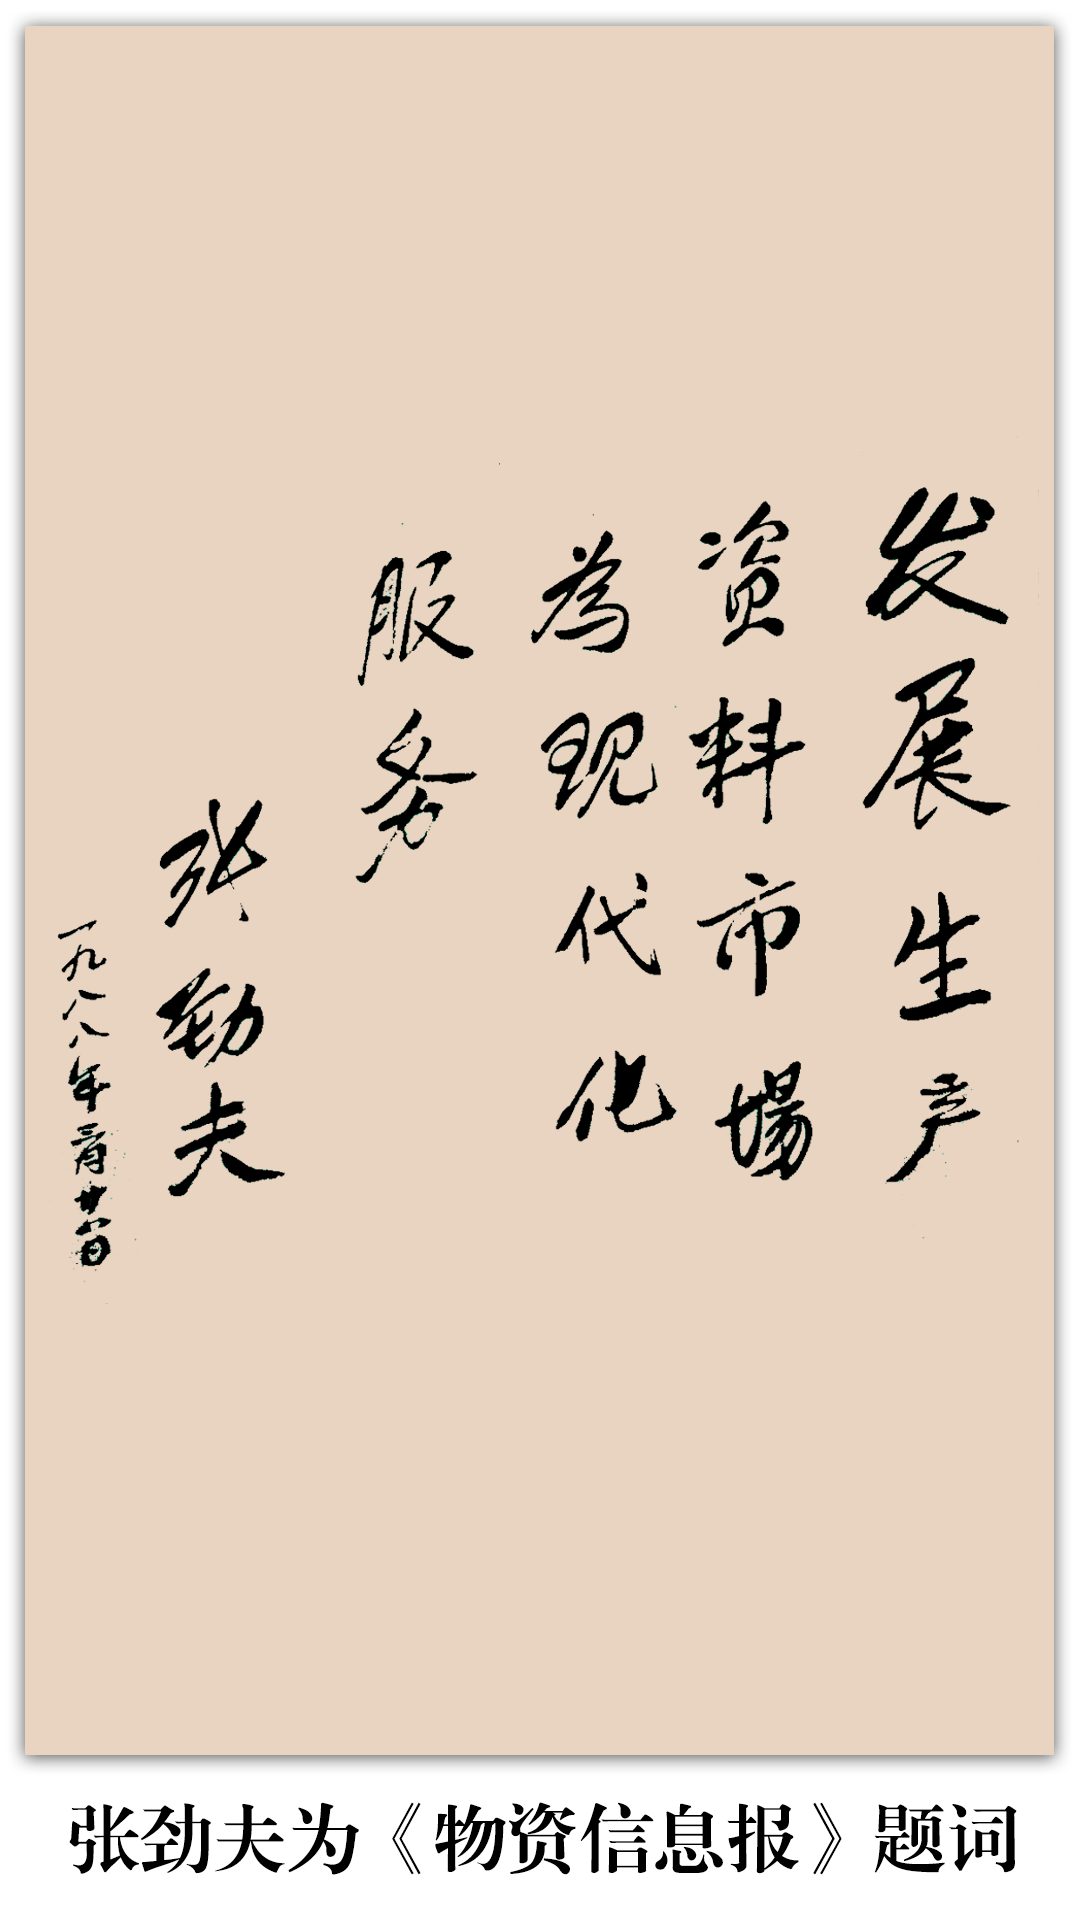 发展生产
资料市場
為现代化
服务
张劲夫
一九八八年二月廿六日
张劲夫为《物资信息报》题词